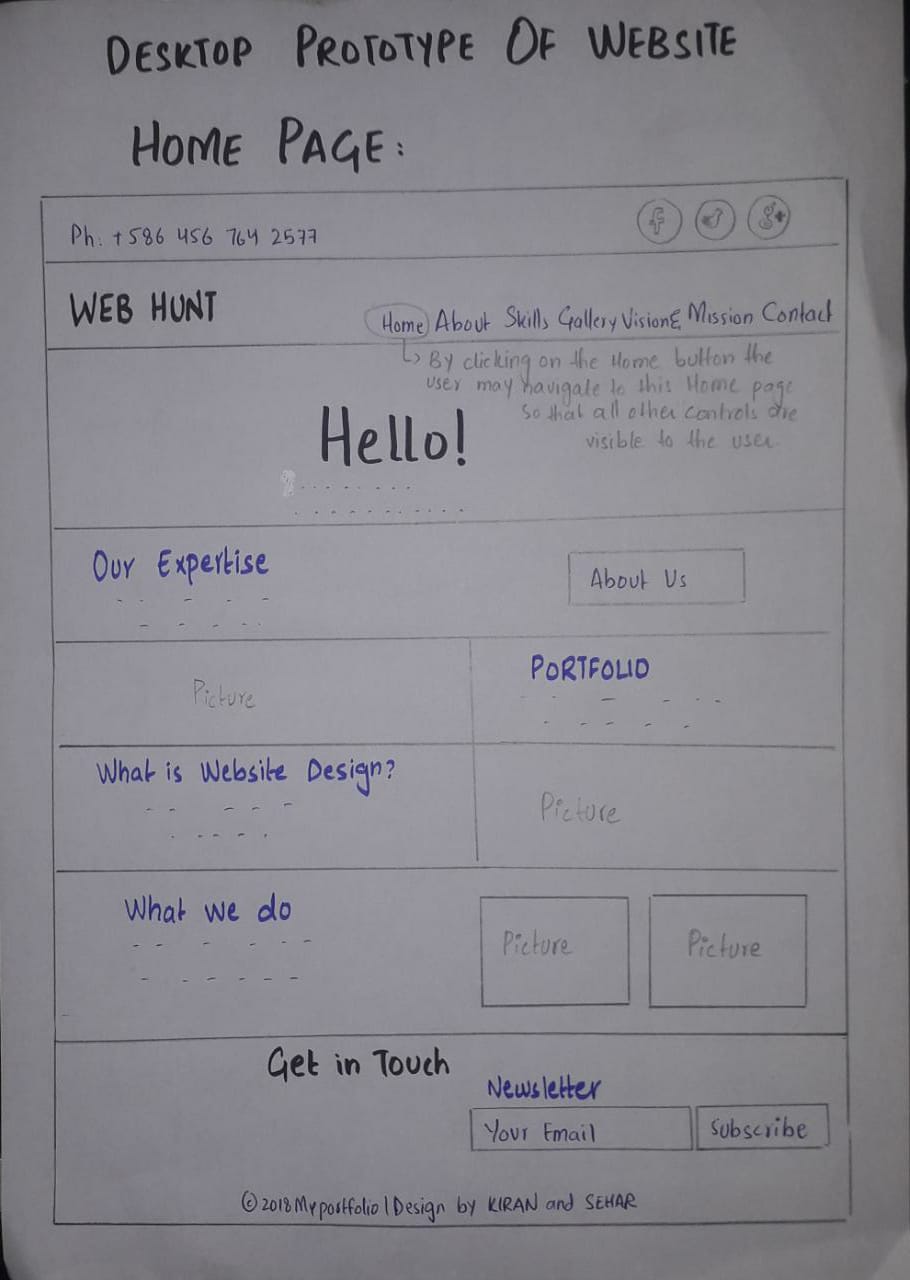 DESKTOP PROTOTYPE OF WEBSITE
HOME PAGE:
Ph: +586 456 764 2577
f g+
WEB HUNT
Home About Skills Gallery Vision& Mission Contact
By clicking on the Home button the
user may navigate to this Home page
so that all other controls are
visible to the user.
Hello!
Our Expertise
About Us
Picture
PORTFOLIO
What is Website Design?
Picture
What we do
Picture Picture
Get in Touch
Newsletter
Your Email Subscribe
© 2018 My portfolio | Design by KIRAN and SEHAR